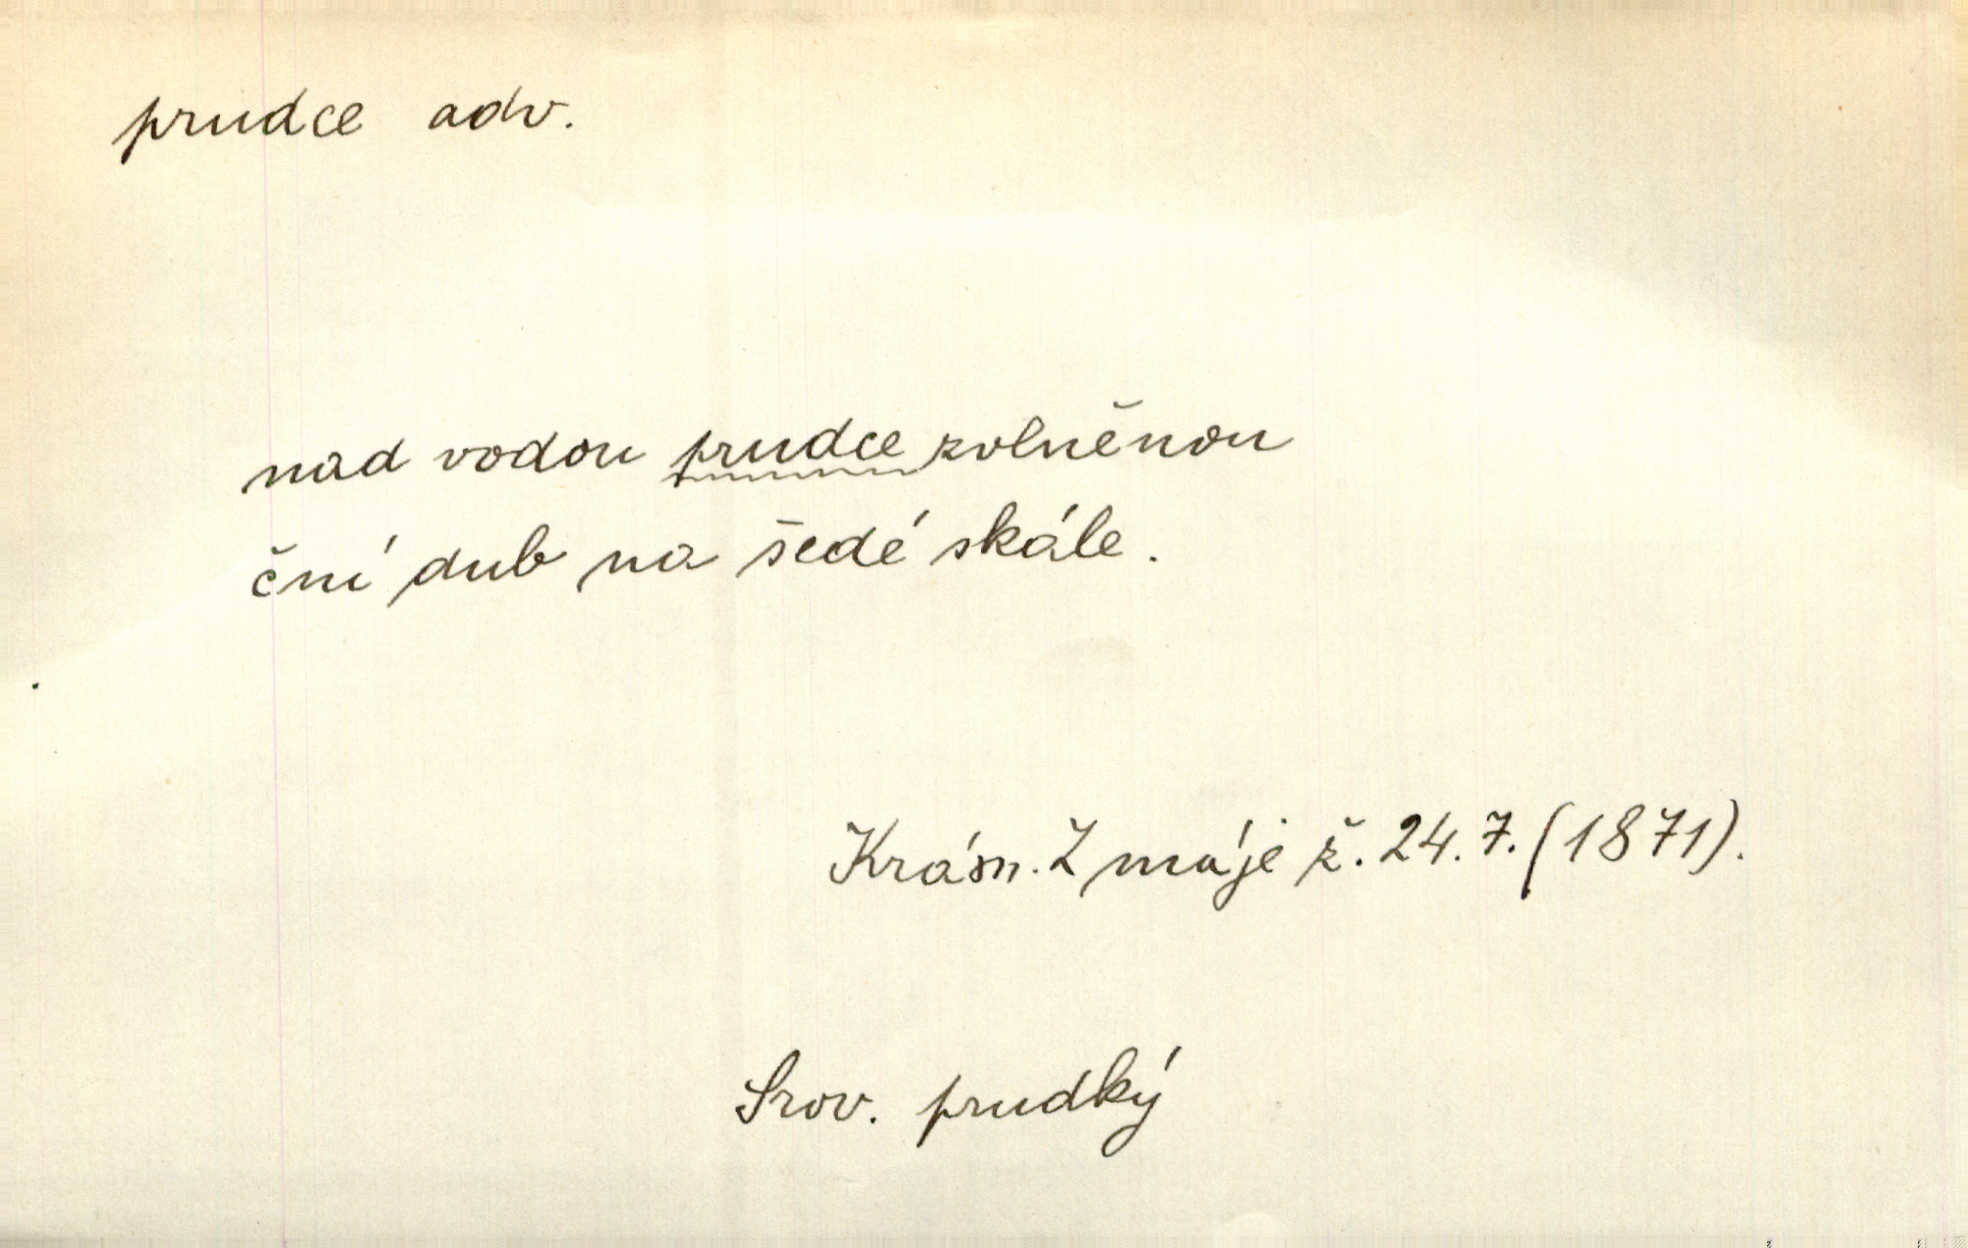 prudce adv.
nad vodou prudce zvlněnou
ční dub na šedé skále.
Krásn. Z máje ž. 24. 7. (1871).
Srov. prudký